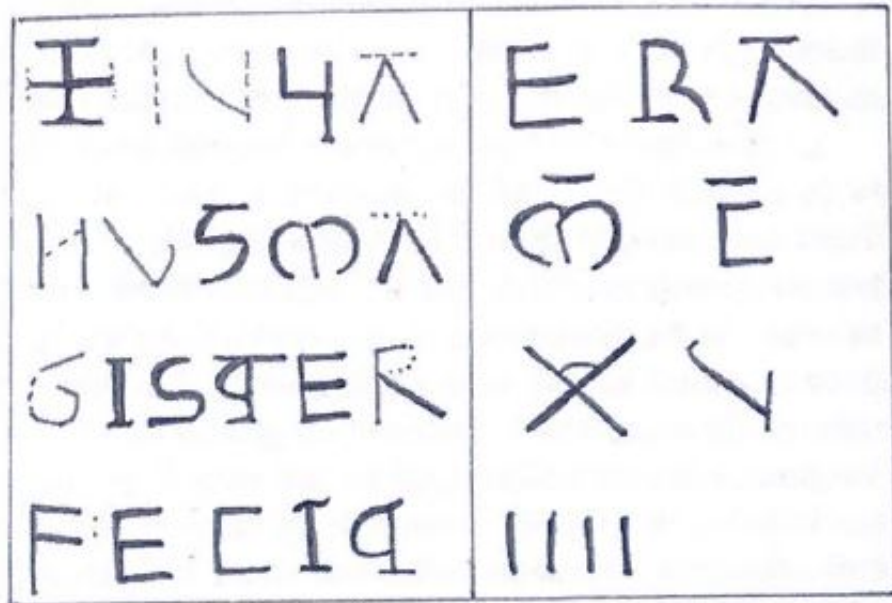 HVSMA
GISTER
FECIT
ERA
M C
XV
IIII